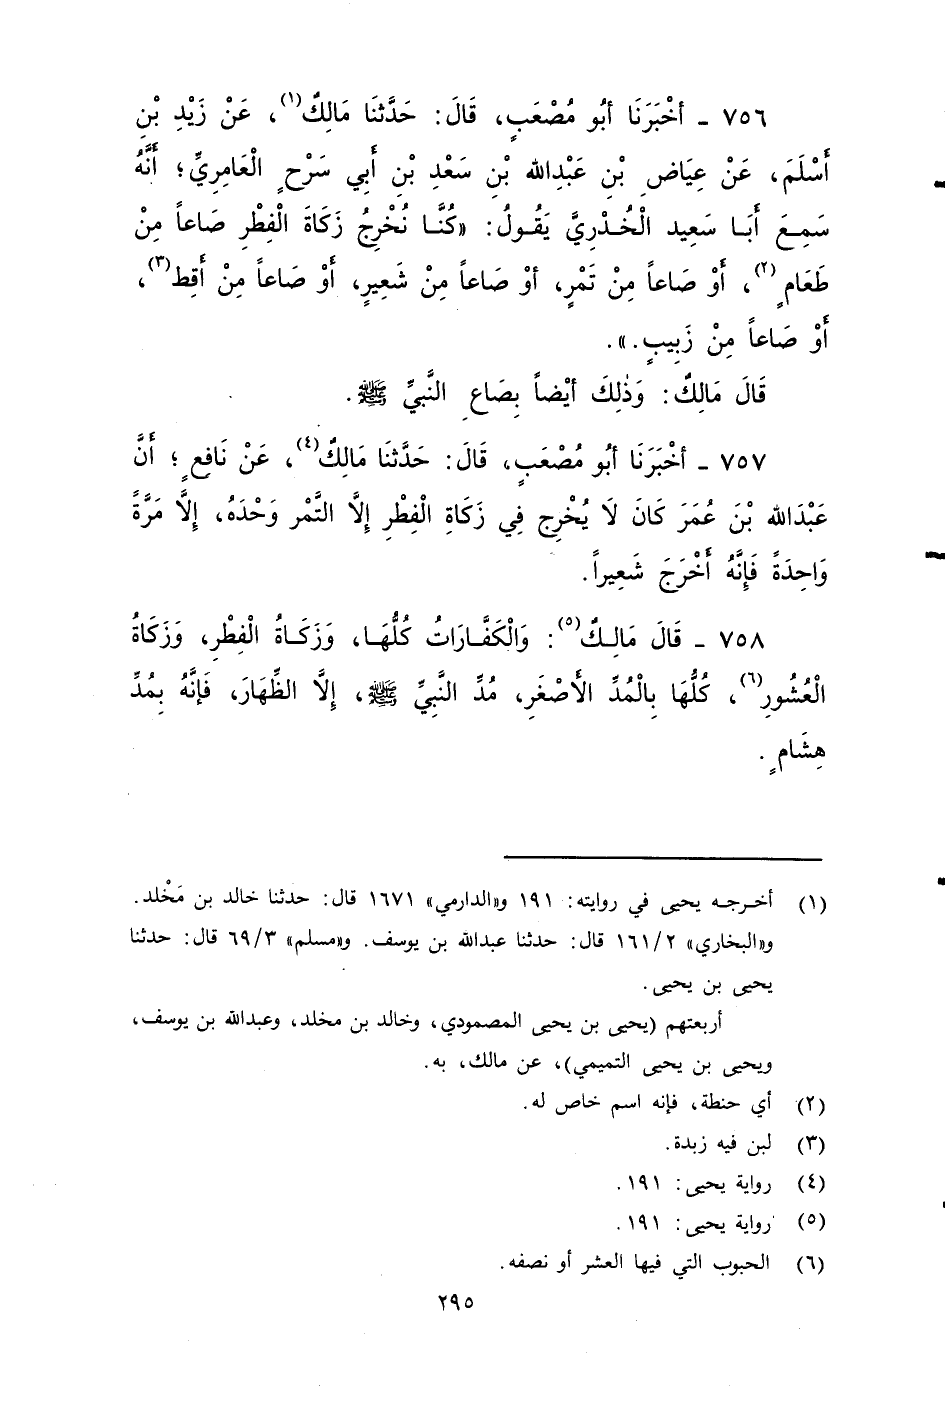 ٧٥٦ ـ أَخْبَرَنَا أَبُو مُصْعَبٍ، قَالَ: حَدَّثَنَا مَالِكٌ(١)، عَنْ زَيْدِ بْنِ
أَسْلَمَ، عَنْ عِيَاضِ بْنِ عَبْدِاللهِ بْنِ سَعْدِ بْنِ أَبِي سَرْحٍ الْعَامِرِيِّ؛ أَنَّهُ
سَمِعَ أَبَا سَعِيد الْخُدْرِيَّ يَقُولُ: «كُنَّا نُخْرِجُ زَكَاةَ الْفِطْرِ صَاعاً مِنْ
طَعَامٍ(٢)، أَوْ صَاعاً مِنْ تَمْرٍ، أوْ صَاعاً مِنْ شَعِيرٍ، أَوْ صَاعاً مِنْ أَقِطٍ(٣)،
أَوْ صَاعاً مِنْ زَبِيبٍ.».
قَالَ مَالِكٌ: وَذٰلِكَ أَيْضاً بِصَاعِ النَّبِيِّ ﷺ.
٧٥٧ ـ أَخْبَرَنَا أَبُو مُصْعَبٍ، قَالَ: حَدَّثَنَا مَالِكٌ(٤)، عَنْ نَافِعٍ؛ أَنَّ
عَبْدَاللهِ بْنَ عُمَرَ كَانَ لَا يُخْرِج فِي زَكَاةِ الْفِطْرِ إِلَّا التَّمْر وَحْدَهُ، إِلَّا مَرَّةً
وَاحِدَةً فَإِنَّهُ أَخْرَجَ شَعِيراً.
٧٥٨ ـ قَالَ مَالِكٌ(٥): وَالْكَفَّارَاتُ كُلُّهَا، وَزَكَاةُ الْفِطْرِ، وَزَكَاةُ
الْعُشُورِ(٦)، كُلُّهَا بِالْمُدِّ الأَصْغَرِ، مُدِّ النَّبِيِّ ﷺ، إِلَّا الظِّهَارَ، فَإِنَّهُ بِمُدِّ
هِشَامٍ.
(١) أخرجه يحيى في روايته: ١٩١ و«الدارمي» ١٦٧١ قال: حدثنا خالد بن مَخْلد.
و«البخاري» ١٦١/٢ قال: حدثنا عبدالله بن يوسف. و«مسلم» ٦٩/٣ قال: حدثنا
يحيى بن يحيى.
أربعتهم (يحيى بن يحيى المصمودي، وخالد بن مخلد، وعبدالله بن يوسف،
ويحيى بن يحيى التميمي)، عن مالك، به.
(٢) أي حنطة، فإنه اسم خاص له.
(٣) لبن فيه زبدة.
(٤) رواية يحيى: ١٩١.
(٥) رواية يحيى: ١٩١.
(٦) الحبوب التي فيها العشر أو نصفه.
٢٩٥